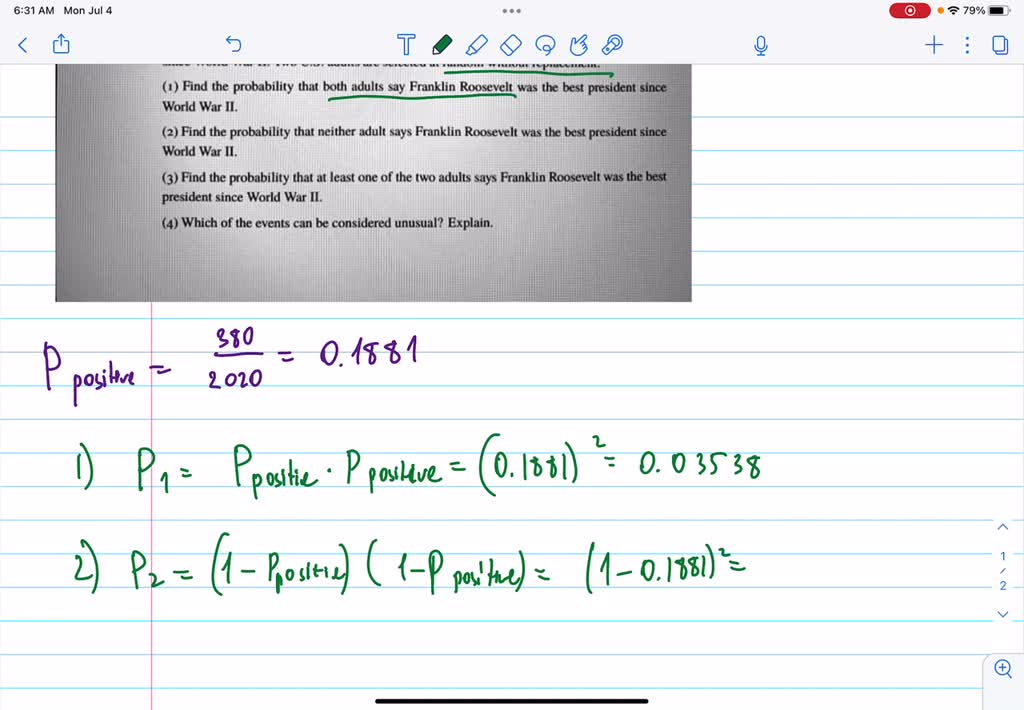 6:31 AM Mon Jul 4
79%
random without replacement.
(1) Find the probability that both adults say Franklin Roosevelt was the best president since
World War II.
(2) Find the probability that neither adult says Franklin Roosevelt was the best president since
World War II.
(3) Find the probability that at least one of the two adults says Franklin Roosevelt was the best
president since World War II.
(4) Which of the events can be considered unusual? Explain.
P positive = 380/2020 = 0.1881
1) P1 = Ppositie · Ppositive = (0.1881)² = 0.03538
2) P2 = (1 - Ppositie) (1 - Ppositive) = (1 - 0.1881)² =
1
/
2